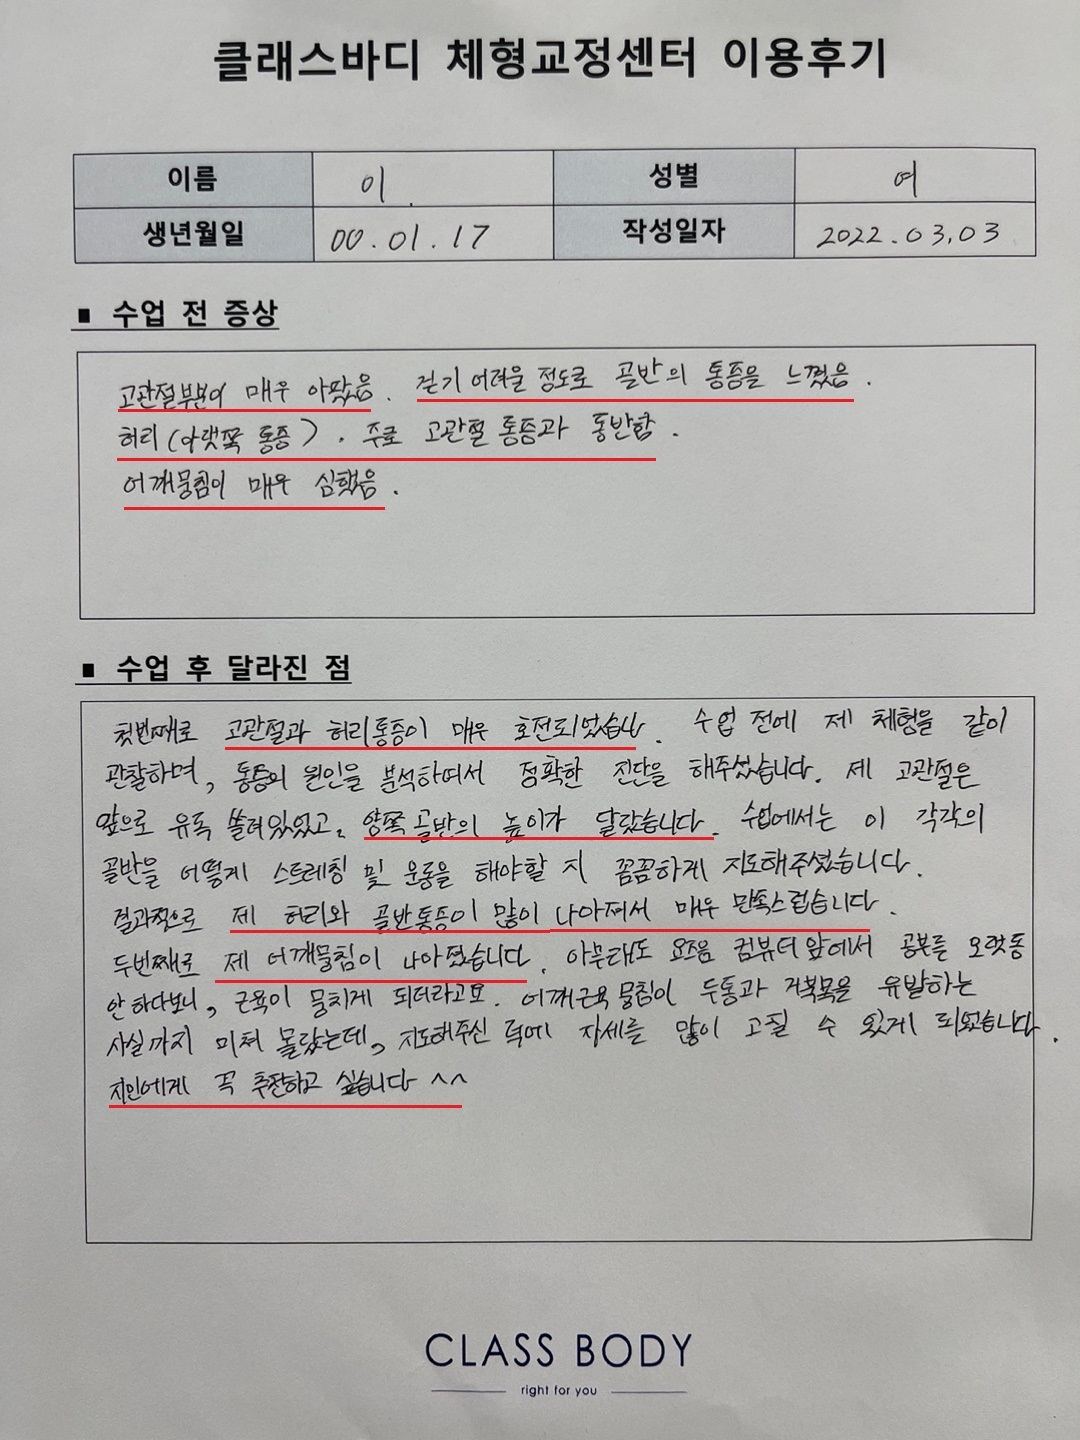 클래스바디 체형교정센터 이용후기
이름 이 성별 여
생년월일 00.01.17 작성일자 2022.03.03
■ 수업 전 증상
고관절부분이 매우 아팠음. 걷기 어려울 정도로 골반의 통증을 느꼈음.
허리(아랫쪽 통증). 주로 고관절 통증과 동반함.
어깨뭉침이 매우 심했음.
■ 수업 후 달라진 점
첫번째로 고관절과 허리통증이 매우 호전되었습니다. 수업 전에 제 체형을 같이
관찰하며, 통증의 원인을 분석하여서 정확한 진단을 해주셨습니다. 제 고관절은
앞으로 유독 쏠려있었고, 양쪽 골반의 높이가 달랐습니다. 수업에서는 이 각각의
골반을 어떻게 스트레칭 및 운동을 해야할 지 꼼꼼하게 지도해주셨습니다.
결과적으로 제 허리와 골반통증이 많이 나아져서 매우 만족스럽습니다.
두번째로 제 어깨뭉침이 나아졌습니다. 아무래도 요즈음 컴뷰터 앞에서 공부를 오랫동
안 하다보니, 근육이 뭉치게 되더라고요. 어깨근육 뭉침이 두통과 거북목을 유발하는
사실까지 미처 몰랐는데, 지도해주신 덕에 자세를 많이 고칠 수 있게 되었습니다.
지인에게 꼭 추천하고 싶습니다 ^^
CLASS BODY
right for you